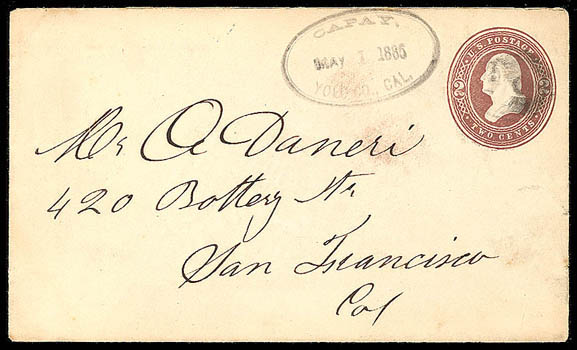 CAPAY,
MAY 1 1885
YOLO CO., CAL.
U.S. POSTAGE
2 2
TWO CENTS
Mr A Daneri
420 Battery Str
San Francisco
Cal